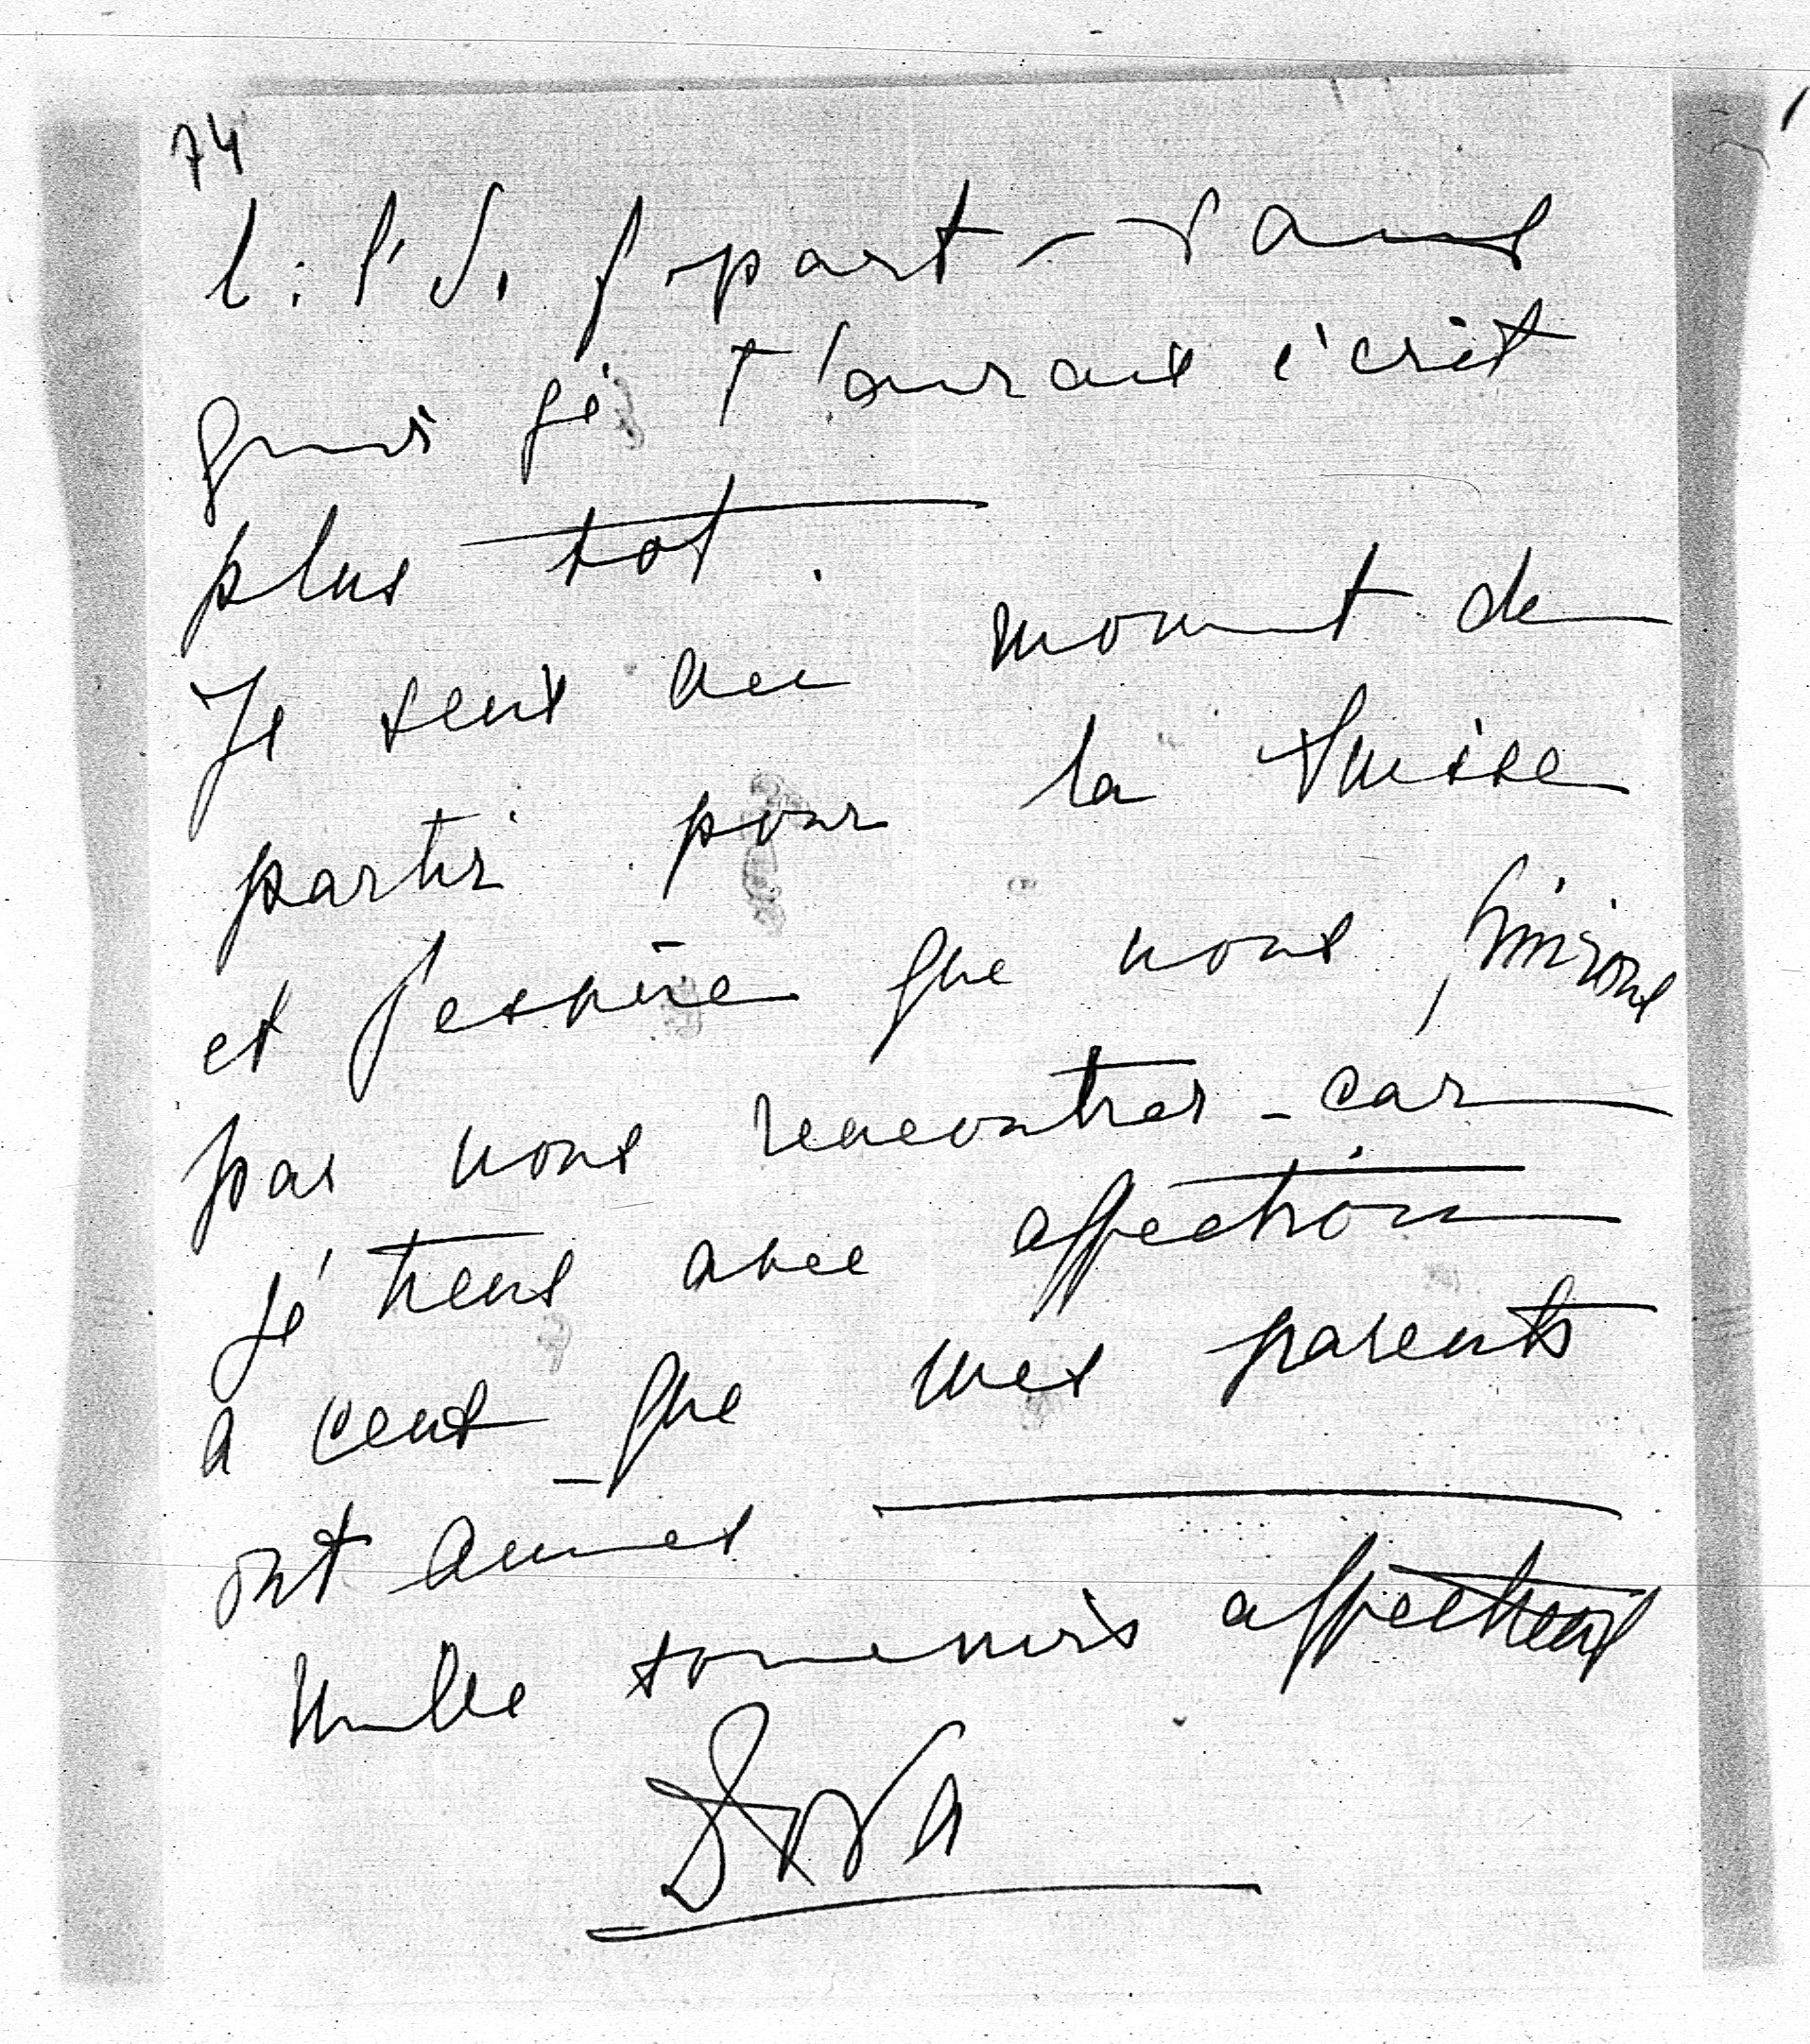 74
part - sans
quoi je t'aurais écrit
plus tot.
Je suis au moment de
partir pour la Suisse
et j'espère que nous finirons
par nous rencontrer - car
je tiens avec affection
a ceux - que mes parents
ont aimés
Mille souvenirs affectueux